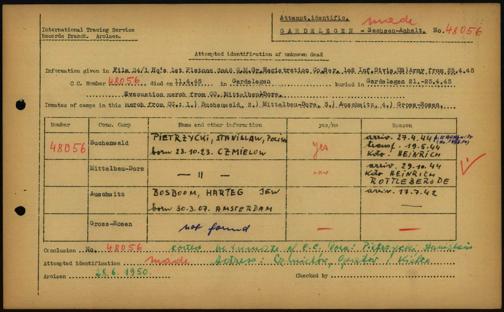 International Tracing Service
Records Branch. Arolsen.
Attempt.identific. made
GARDELEGEN - Sachsen-Anhalt. No. 48056
Attempted identification of unknown dead
Information given in
C.C. Number 48056 died on 11.4.45 in Gardelegen buried in Gardelegen 21.-25.4.45
Evacuation march from CC. Mittelbau-Dora.
Inmates of camps in march from CC.s 1.) Buchenwald, 2.) Mittelbau-Dora, 3.) Auschwitz, 4.) Gross-Rosen.
Number Conc. Camp Name and other information yes/no Reason
48056 Buchenwald PIETRZYCKI, STANISLAW, born 23.10.23. CZMIELOW yes arriv. 27.4.44 transf. 19.5.44 Kdo. HEINRICH
Mittelbau-Dora — " — — arriv. 29.10.44 Kdo HEINRICH ROTTLEBERODE
Auschwitz BOSBOOM, HARTEG JEW born 30.3.07. AMSTERDAM — arriv. 17.7.42
Gross-Rosen not found — —
Conclusion No. 48056
Attempted identification made
Arolsen 28.6.1950 Checked by